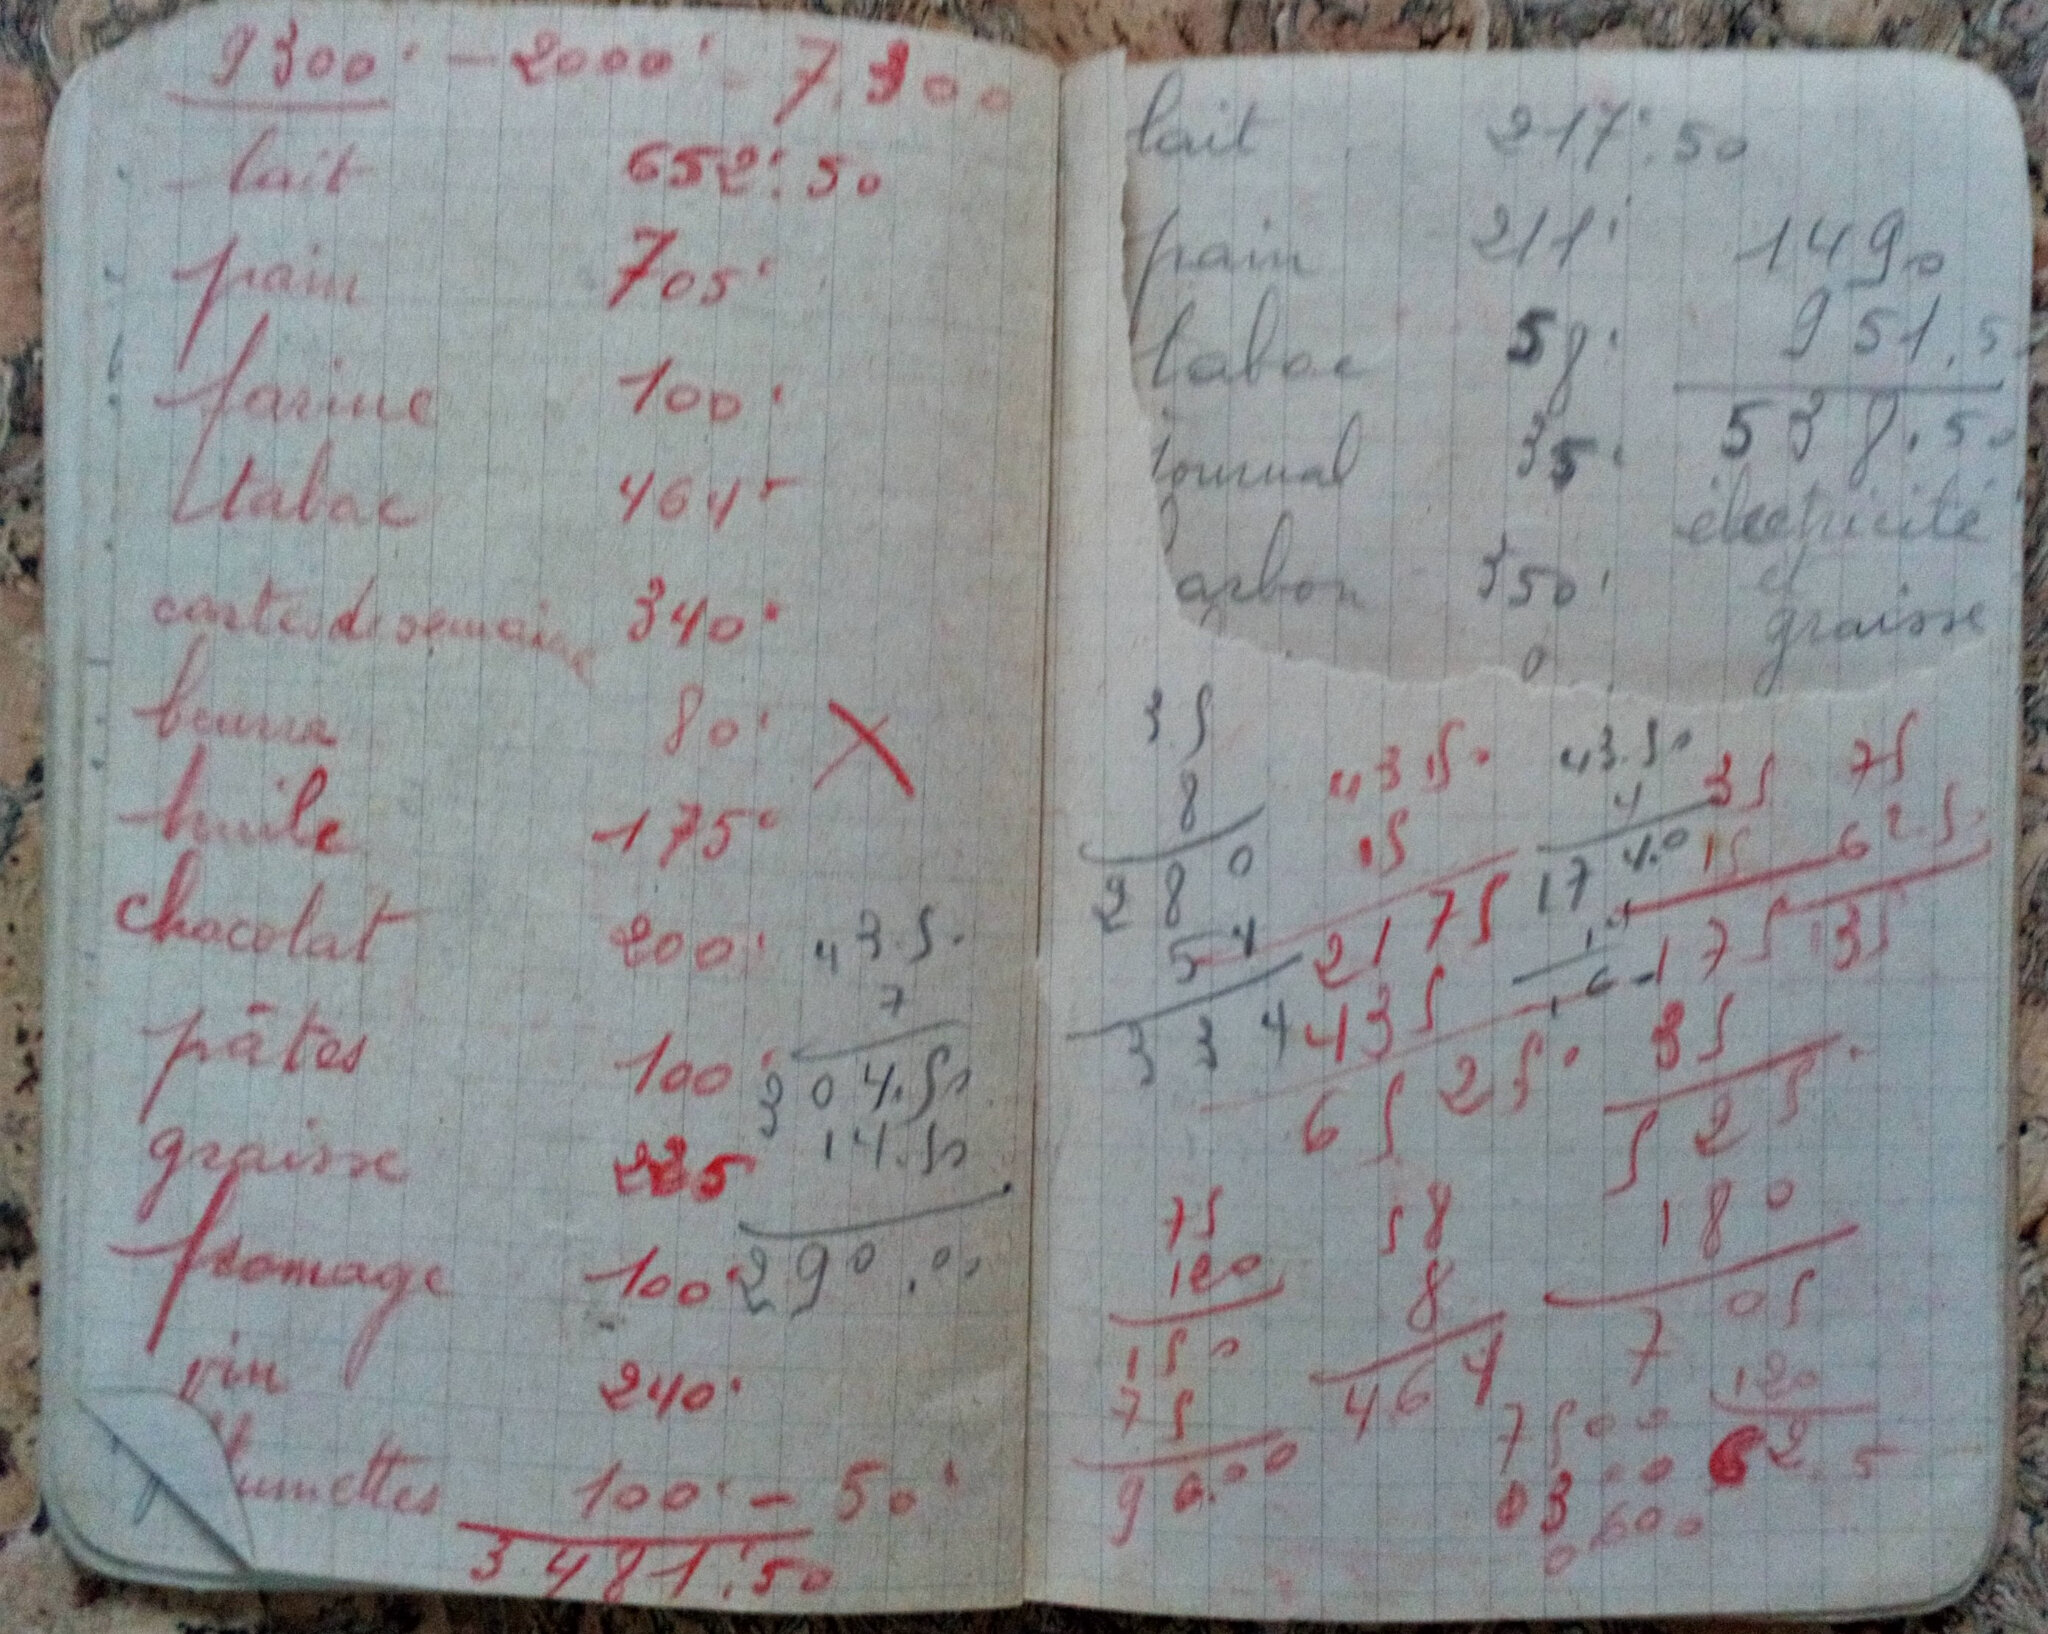 9300' - 2000' - 7.300
lait 652':50
pain 705'
farine 100'
tabac 464
cartes de semaine 340'
beurre 80'
huile 175'
chocolat 200'
pâtes 100'
graisse 235
fromage 100'
vin 240'
umettes 100' - 50'
3.481':50
43.50
7
304.50
14.50
290.00
lait 217':50
pain 211'
tabac 58'
journal 35'
arbon 350'
1490
951.5
538.50
électricité
et
graisse
35
8
280
54
334
4350
15
2175
435
6525
43.50
4
174.0
35
15
175
35
525
180
705
75
625
135
75
120
150
75
90.00
58
8
464
7500
120
62.5
600
0